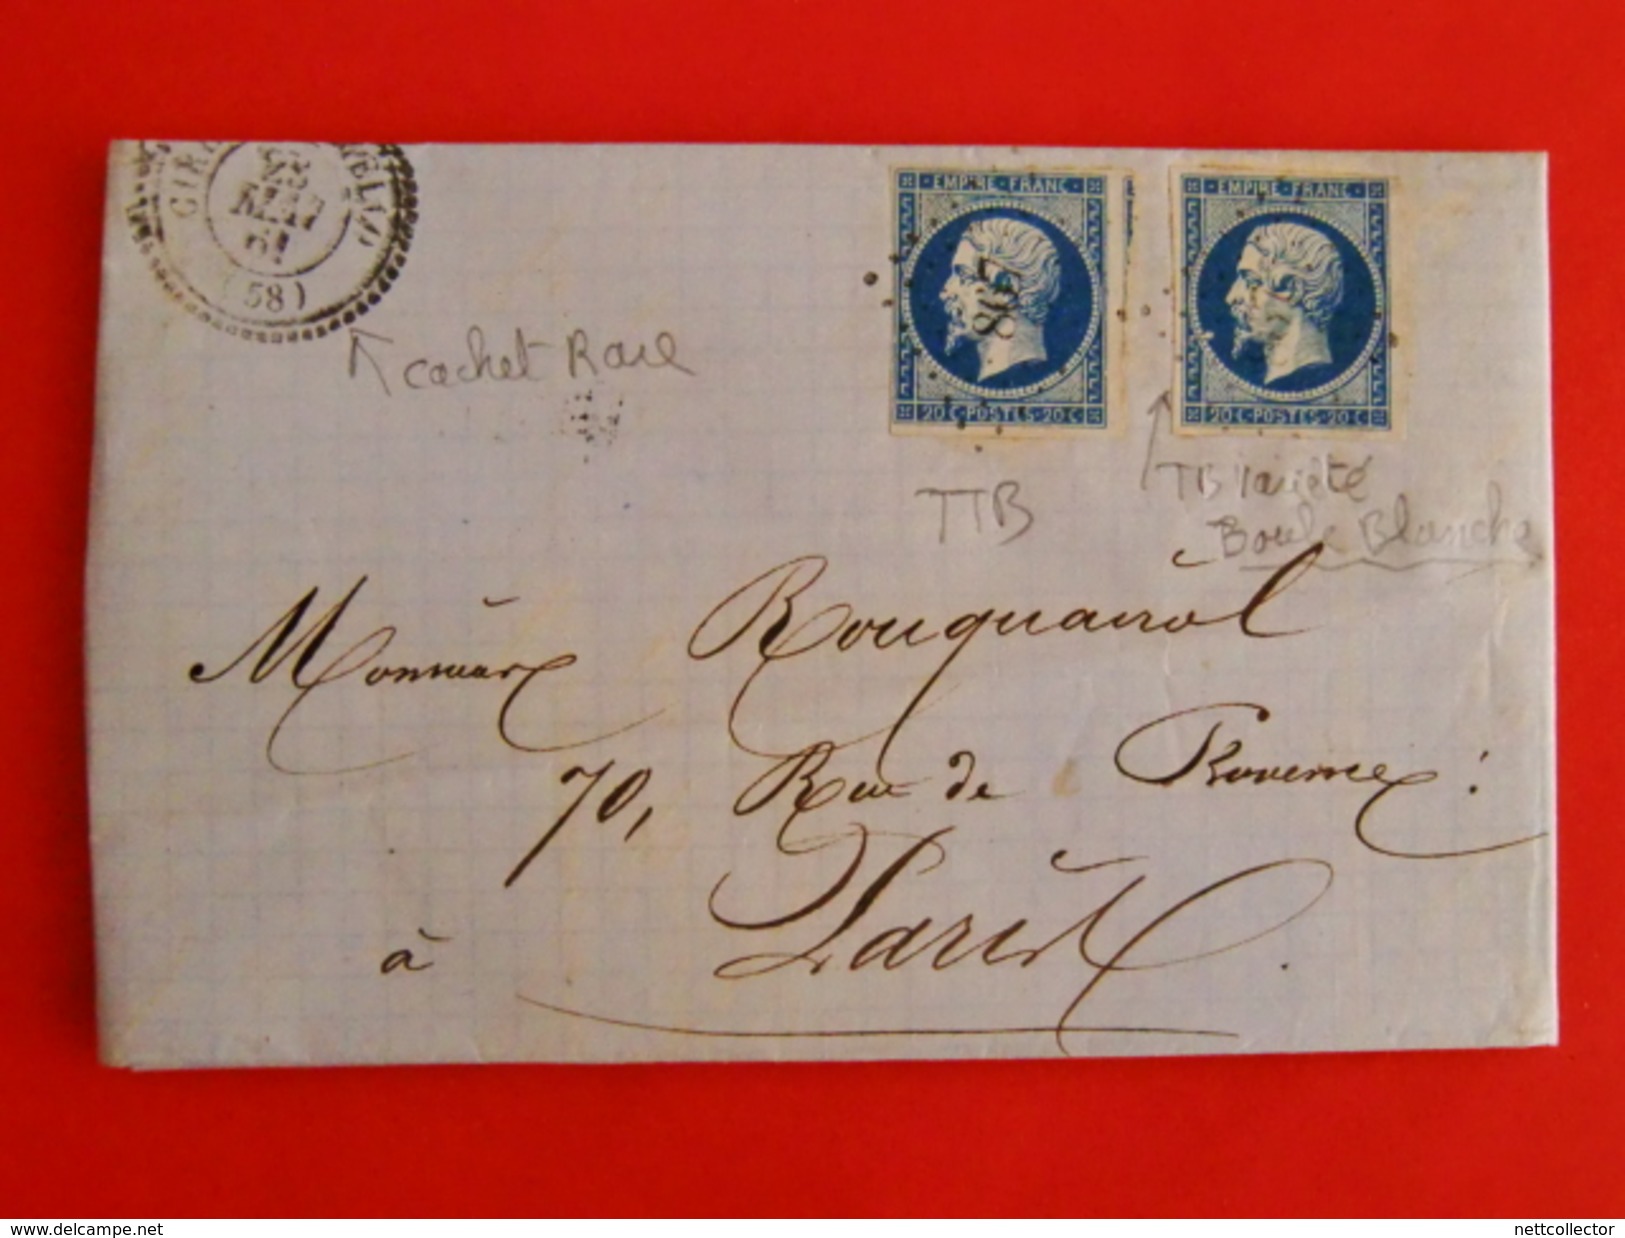 (58)
MAI
61
EMPIRE · FRANC ·
EMPIRE · FRANC ·
20 C · POSTES · 20 C
20 C · POSTES · 20 C
cachet Rare
TTB
TB variété
Boule Blanche
Monsieur Rouquairol
70, Rue de Provence
à Paris.
www.delcampe.net
nettcollector